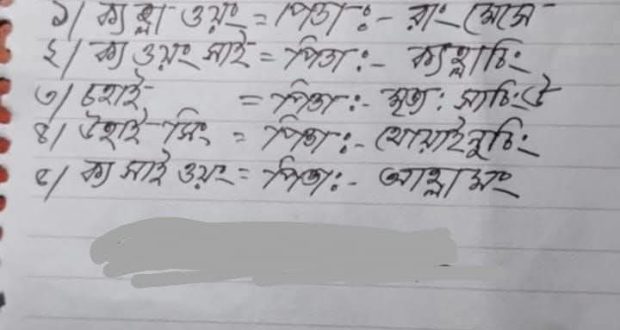 ১/ ক্য হ্লা ওয়ং = পিতা :- রাং মেসে
২/ ক্য ওয়ং সাই = পিতা :- ক্যহ্লাচিং
৩/ চহাই = পিতা :- মৃত্য :
৪/ উহাই সিং = পিতা :- থোয়াইনুচিং
৫/ ক্য সাই ওয়ং = পিতা :- আহ্লা মং